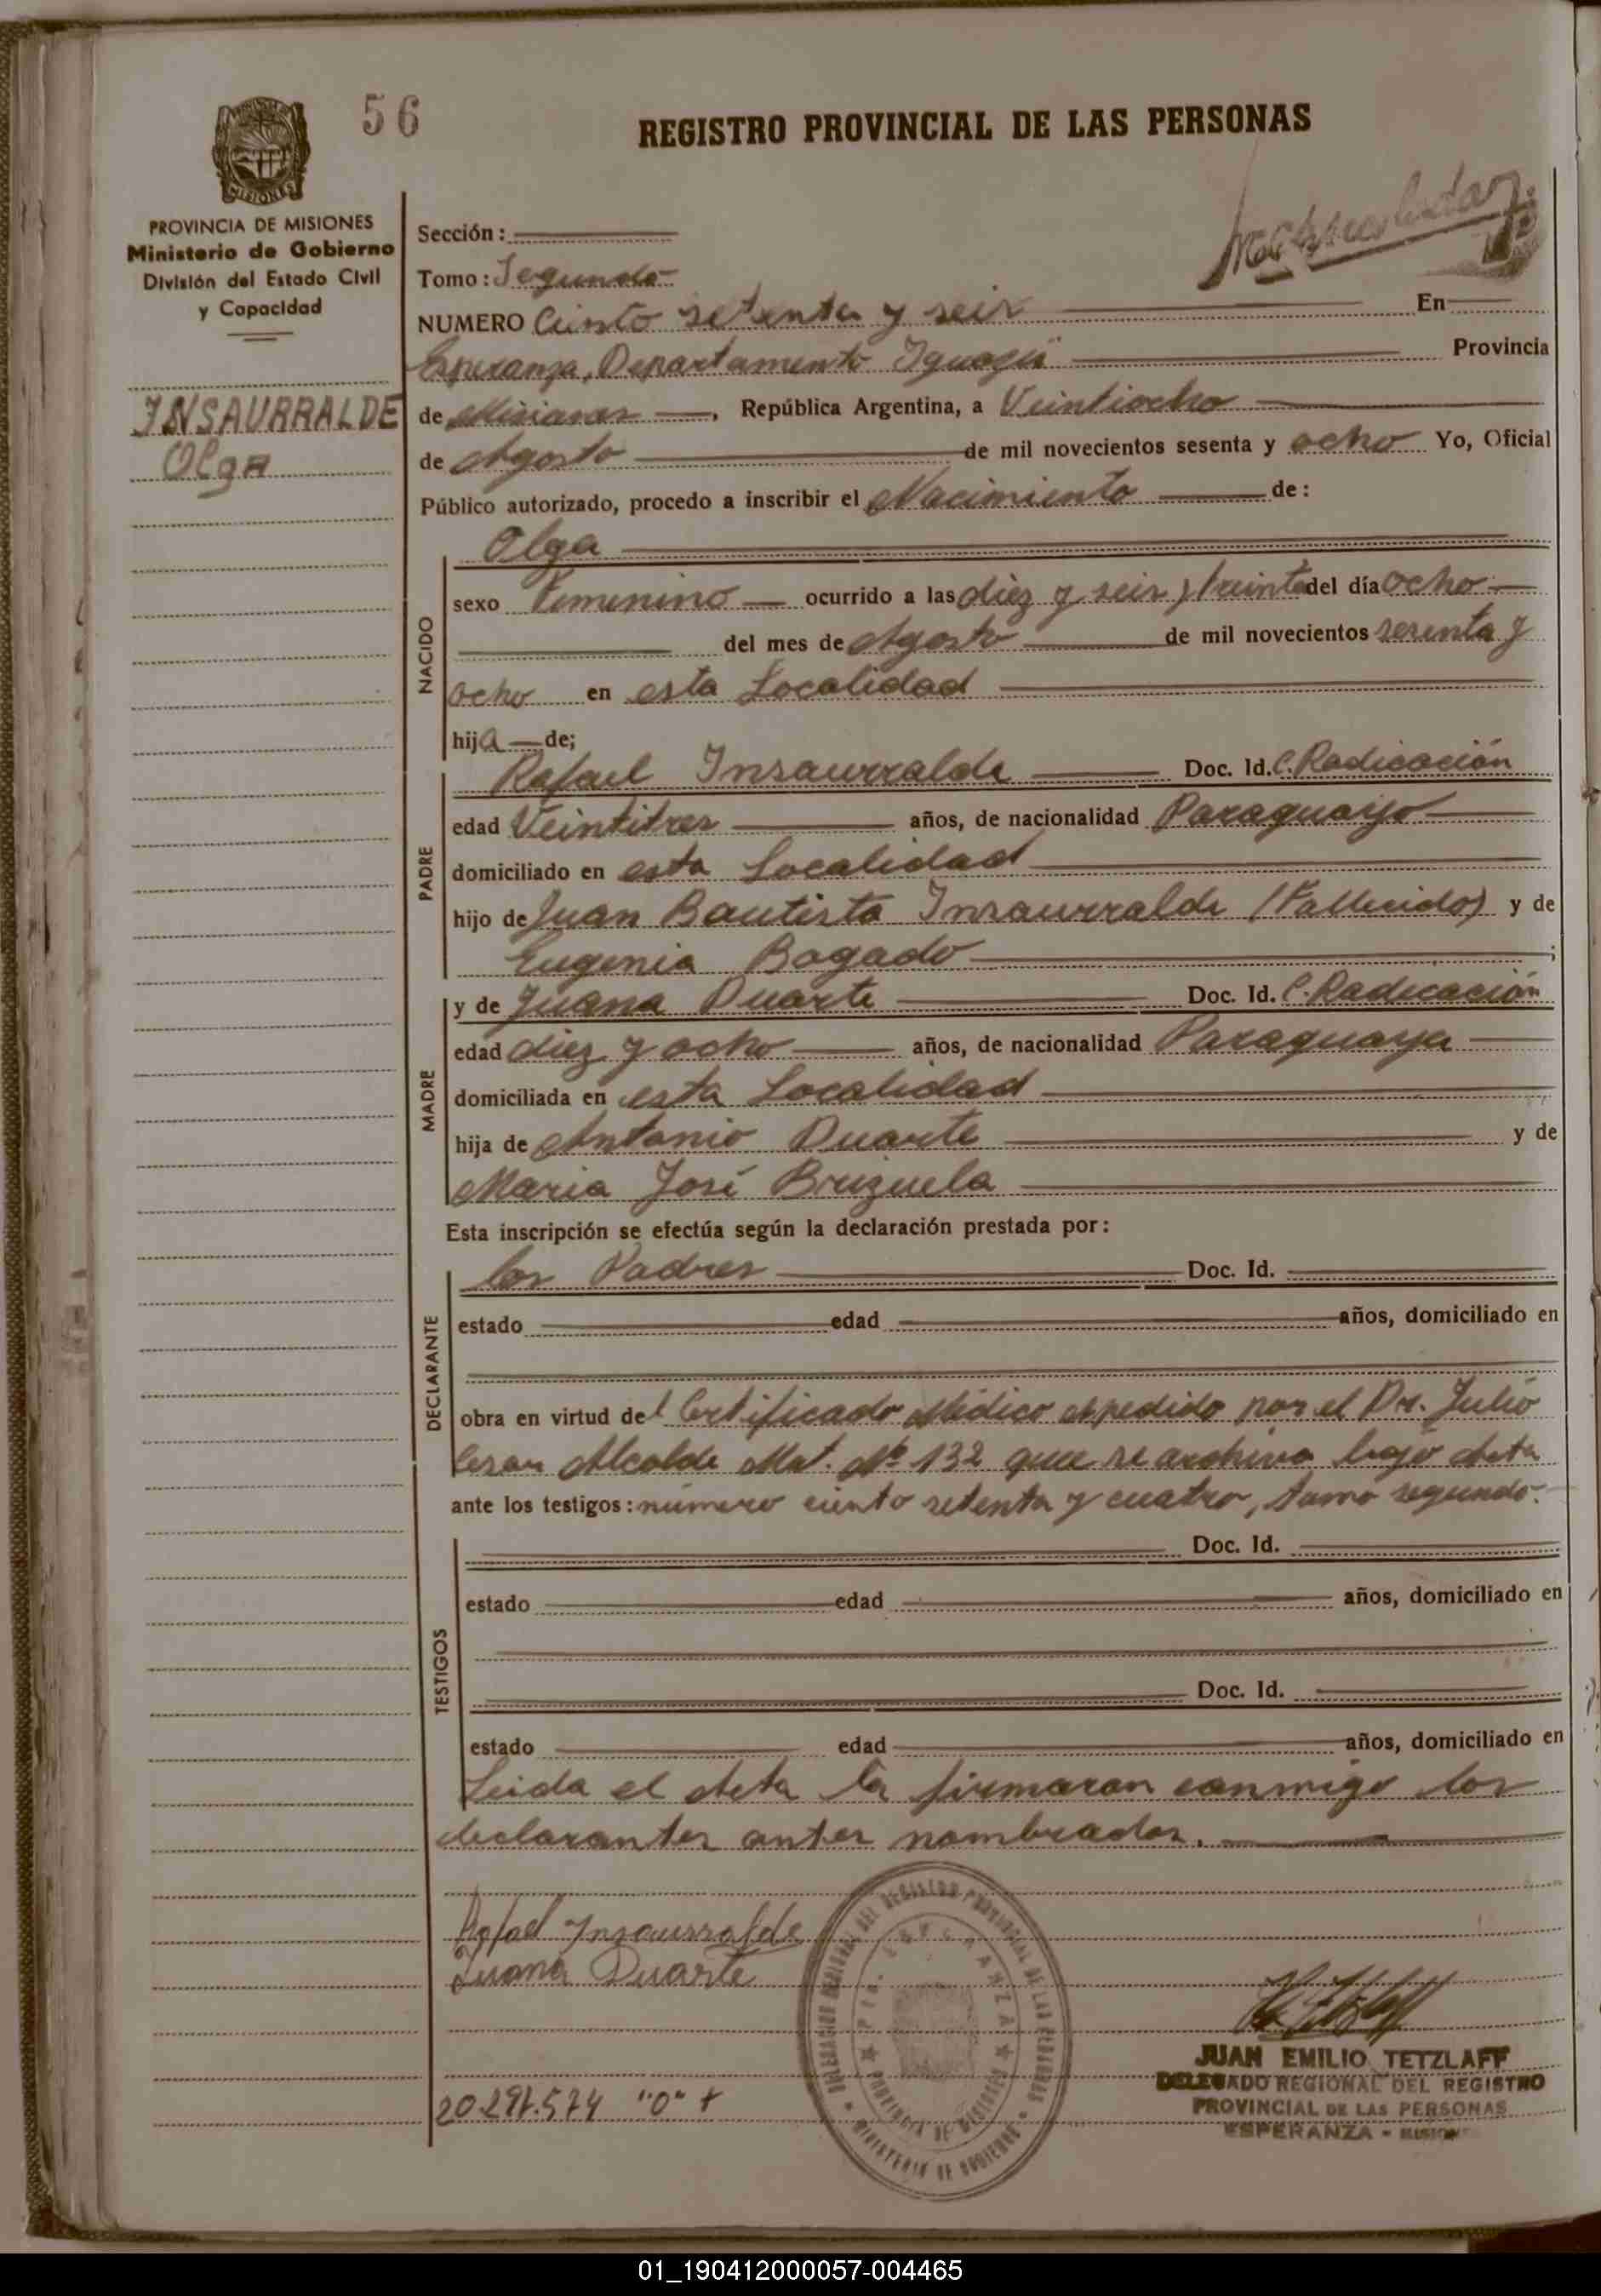 56
REGISTRO PROVINCIAL DE LAS PERSONAS
MISIONES
PROVINCIA DE MISIONES
Ministerio de Gobierno
División del Estado Civil
y Capacidad
INSAURRALDE
Olga
Sección:
Tomo: Segundo
NUMERO Ciento setenta y seis En
Esperanza, Departamento Iguazú Provincia
de Misiones, República Argentina, a Veintiocho
de Agosto de mil novecientos sesenta y ocho Yo, Oficial
Público autorizado, procedo a inscribir el Nacimiento de:
NACIDO
Olga
sexo Femenino ocurrido a las diez y seis y treinta del día ocho
del mes de Agosto de mil novecientos sesenta y
ocho en esta Localidad
hija de;
PADRE
Rafael Insaurralde Doc. Id. C. Radicación
edad Veintitres años, de nacionalidad Paraguayo
domiciliado en esta Localidad
hijo de Juan Bautista Insaurralde (Fallecido) y de
Eugenia Bogado ;
MADRE
y de Juana Duarte Doc. Id. C. Radicación
edad diez y ocho años, de nacionalidad Paraguaya
domiciliada en esta Localidad
hija de Antonio Duarte y de
Maria José Brizuela
Esta inscripción se efectúa según la declaración prestada por:
DECLARANTE
los Padres Doc. Id.
estado edad años, domiciliado en
obra en virtud del Certificado Médico expedido por el Dr. Julio
Cesar Alcalde Mat. Nº 132 que se archiva bajo Acta
ante los testigos: número ciento setenta y cuatro, tomo segundo.
TESTIGOS
Doc. Id.
estado edad años, domiciliado en
Doc. Id.
estado edad años, domiciliado en
Leida el Acta la firmaron conmigo los
declarantes antes nombrados.
Rafael Insaurralde
Juana Duarte
DELEGACION REGIONAL DEL REGISTRO PROVINCIAL DE LAS PERSONAS
MINISTERIO DE GOBIERNO
PTO. ESPERANZA
PROVINCIA DE MISIONES
JUAN EMILIO TETZLAFF
DELEGADO REGIONAL DEL REGISTRO
PROVINCIAL DE LAS PERSONAS
ESPERANZA - MISIONES
"0" +
01_190412000057-004465